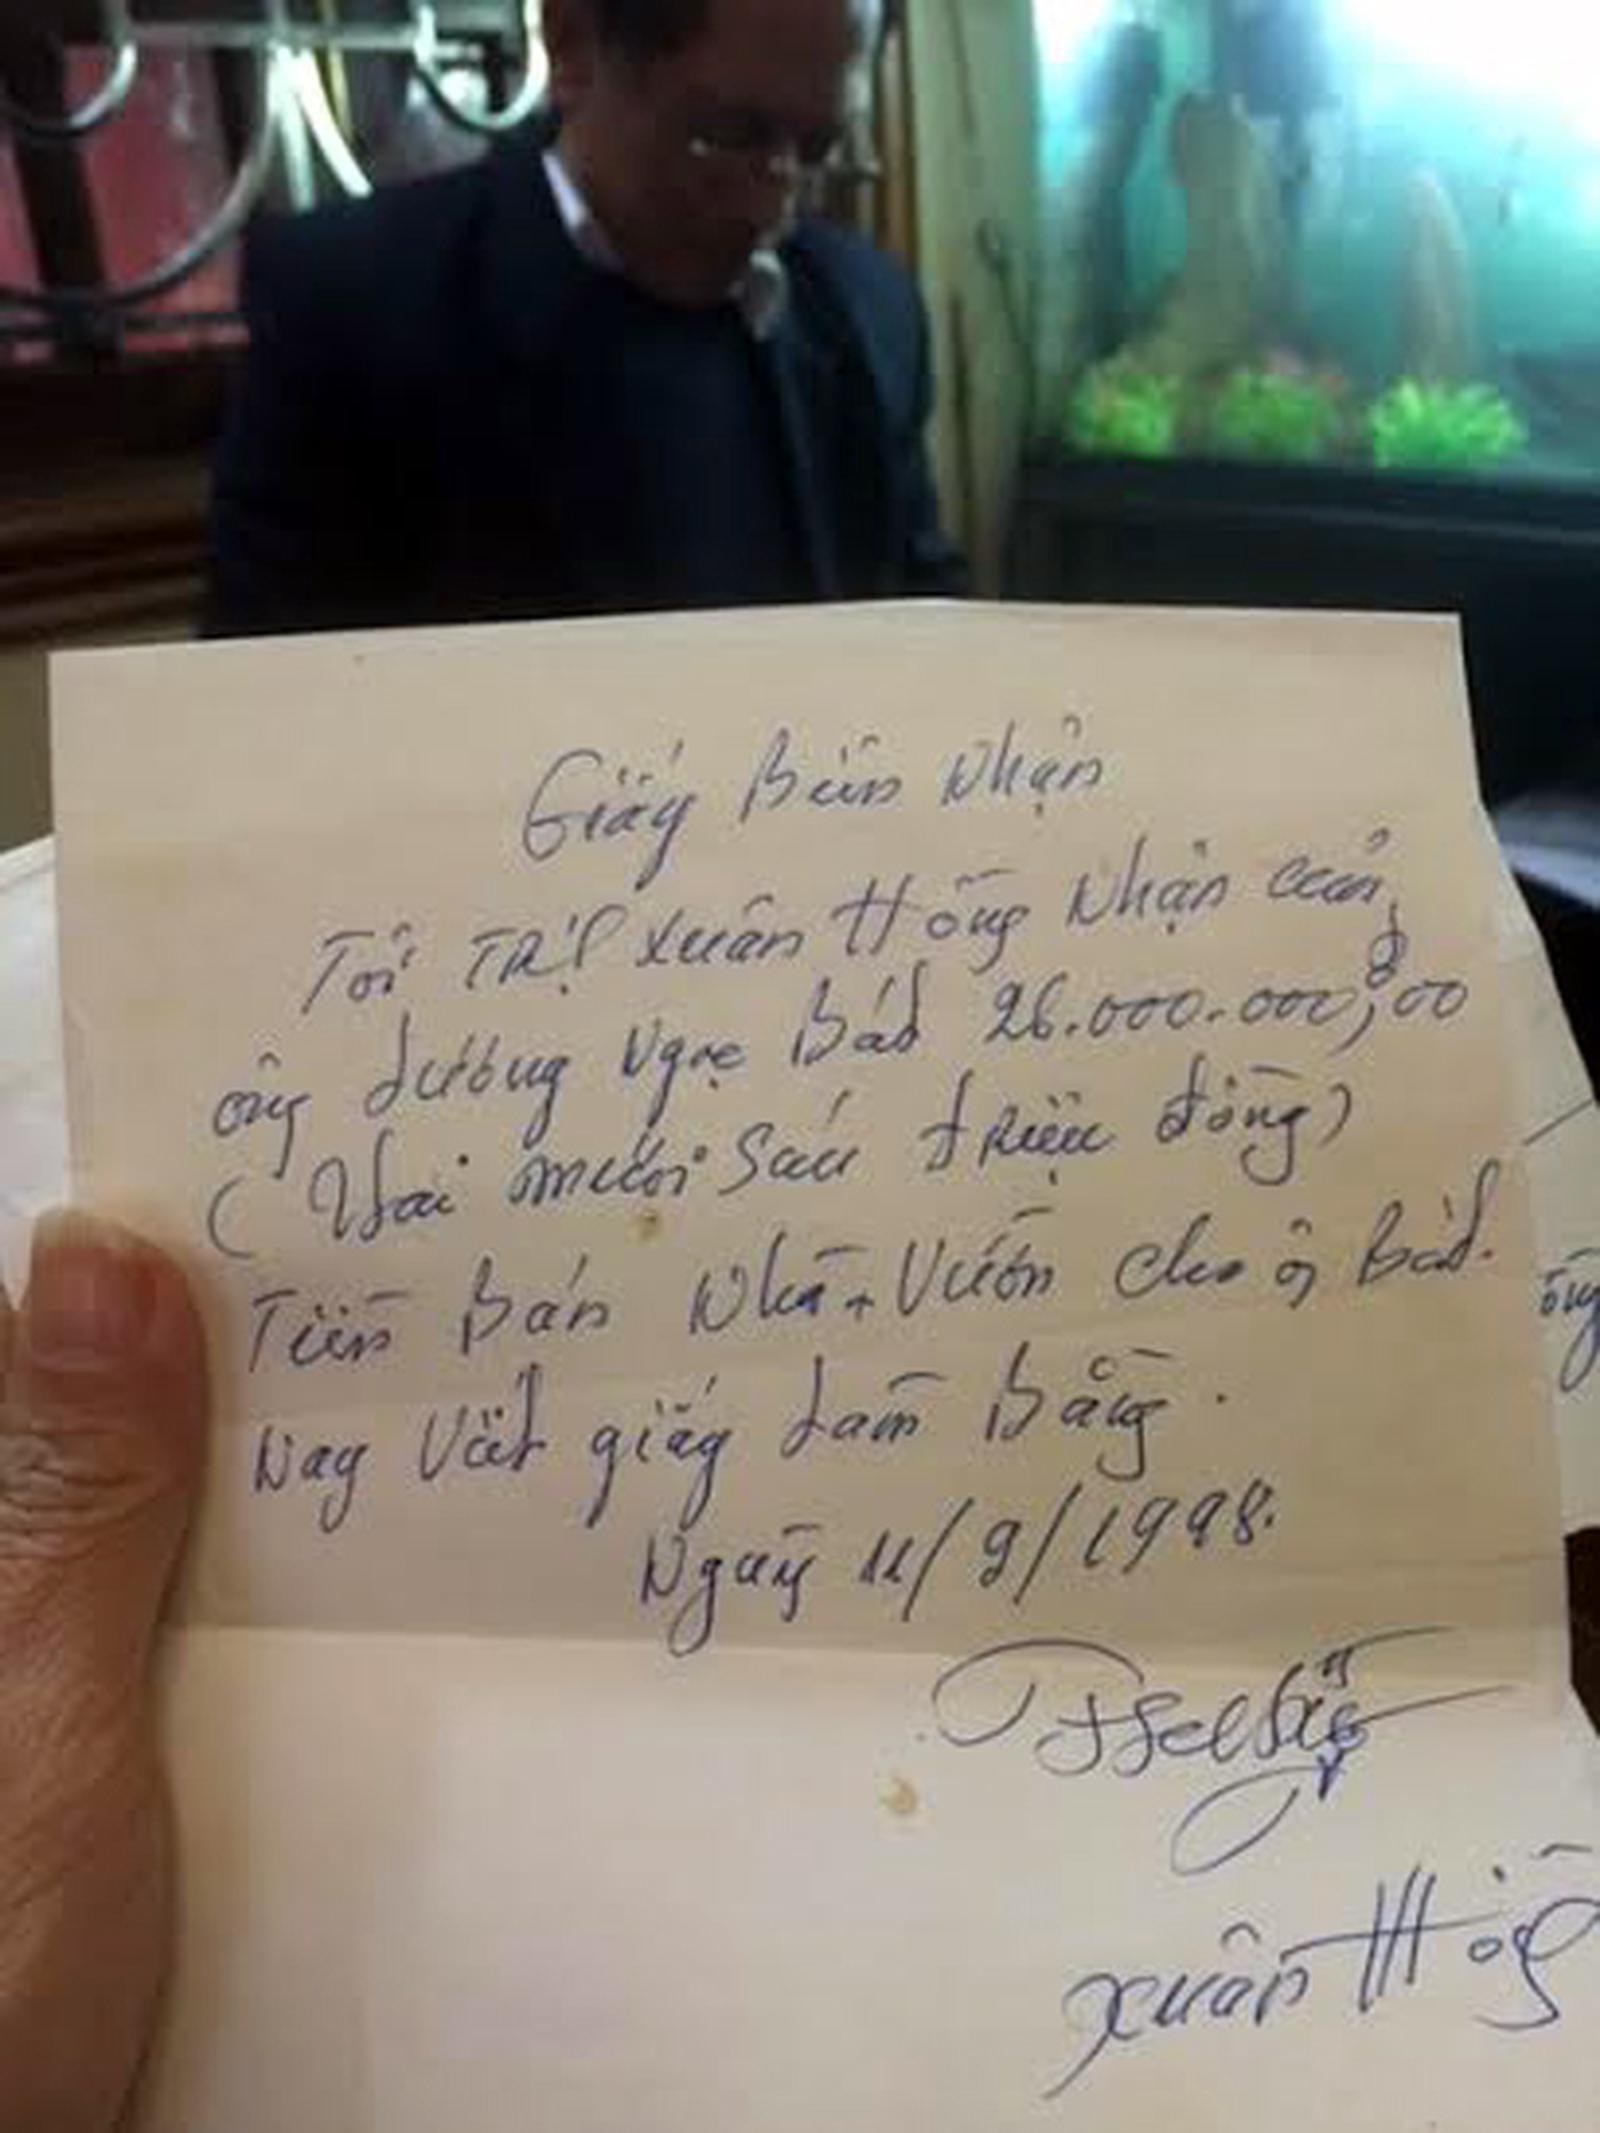 Giấy Biên Nhận
Tôi Trị Xuân Hồng Nhận của
ông dương Ngọc Bát 26.000.000,00
( Hai mươi Sáu triệu đồng )
Tiền Bán Nhà + Vườn cho ô Bát.
Nay Viết giấy Làm Bằng.
Ngày 11/9/1998.
Xuân Hồng
ông